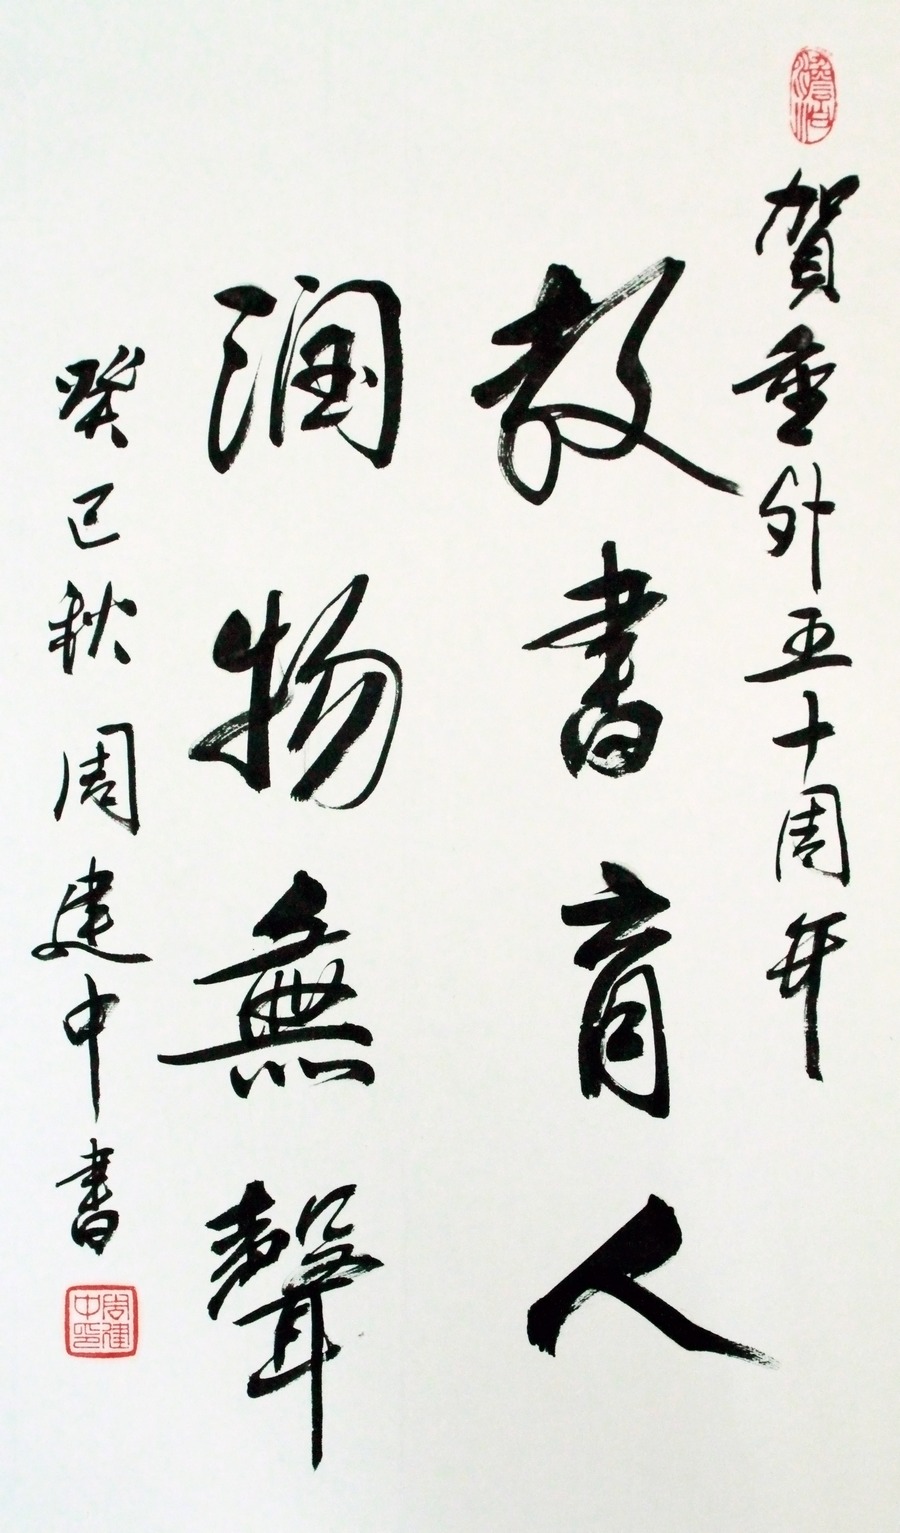 賀重外五十周年
教書育人
润物無聲
癸巳秋 周建中書
周建中印